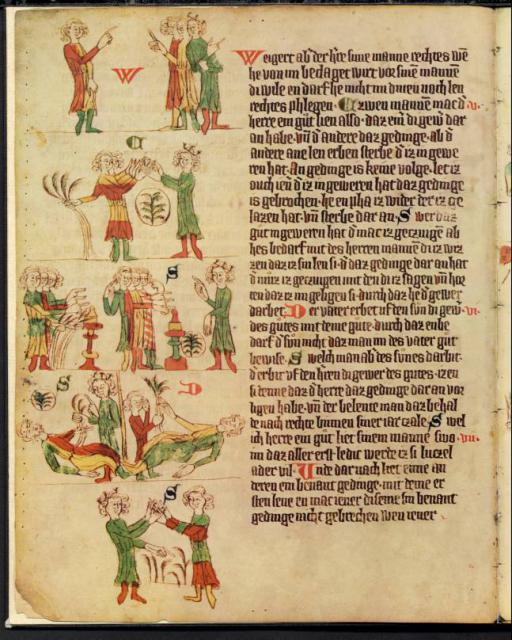 Weigert ab d' h're sime manne rechtes wē
he von im bedaget wirt vor sime manne
di wile en darf he nicht im duren noch len
rechtes phlegen. Czwen mannē mac d'
herre ein gůt lien alsо. daz ein di gewer dar
an habe. vnd' andere daz gedinge. ab d'
andere ane len erben sterbe d' iz in gewe
ren hat. An gedinge is keine volge. let iz
ouch ien d' iz in geweren hat daz gedinge
is gebrochen. he en pha iz wider der iz ge
lazen hat. vn̄ sterbe dar an. Swer daz
gůt in geweren hat d' mac iz gezcuge ab
hes bedarf mit des herren mannē di iz wiz
zen daz iz sin len si. d' daz gedinge dar an hat
d' můz iz gezcugen mit den di iz sagen vn̄ hor
ten daz iz im geligen si. durch daz he d' gewer
darbet. Der vater erbet uf den sun di gew'
des gutes mit deme gůte. durch daz en be
darf d' sun nicht daz man im des vater gůt
bewise. Swelch man ab des sunes darbit.
d' erbit uf den h'ren di gewer des gutes. izen
si denne daz d' herre daz gedinge dar an vor
ligen habe. vn̄ der belente man daz behal
de nach rechte binnen siner iar zcale. Swel
ich herre ein gůt liet sinem manne swo
im daz aller erst ledic werde iz si luzcel
ader vil. Unde dar nach liet eime an
deren ein benant gedinge. mit deme er
sten lene en mac iener diseme sin benant
gedinge nicht gebrechen wen iener